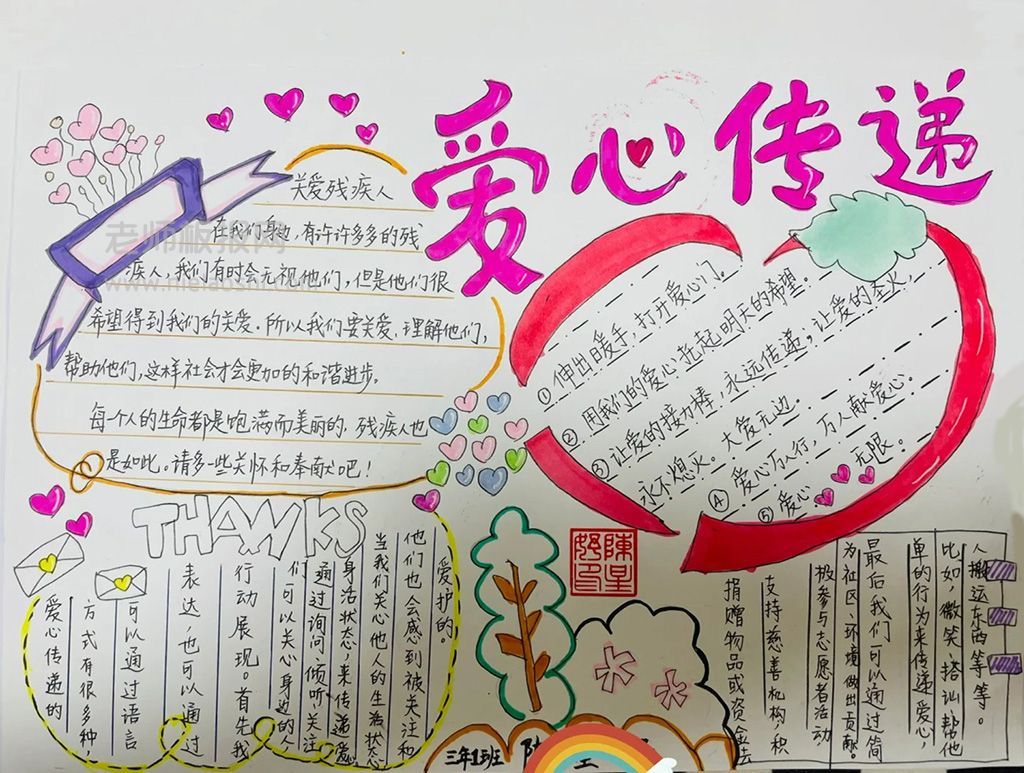 爱心传递
关爱残疾人
在我们身边,有许许多多的残
疾人,我们有时会无视他们,但是他们很
希望得到我们的关爱.所以我们要关爱、理解他们,
帮助他们,这样社会才会更加的和谐进步.
每个人的生命都是饱满而美丽的,残疾人也
是如此。请多一些关怀和奉献吧!
老师板报网
①伸出暖手,打开爱心门。
②用我们的爱心托起明天的希望。
③让爱的接力棒,永远传递;让爱的圣火,
永不熄灭。大爱无边。
④爱心万人行,万人献爱心。
⑤爱心无限。
THANKS
爱心传递的
方式有很多种
可以通过语言
表达,也可以通过
行动展现。首先我
们可以关心身边的人
通过询问、倾听、关注
身活状态,来传递爱
当我们关心他人的生活状态
他们也会感到被关注和
爱护的。
捐赠物品或资金去
支持慈善机构,积
极参与志愿者活动
为社区、环境做出贡献。
最后我们可以通过简
单的行为来传递爱心,
比如,微笑、搭讪、帮他
人搬运东西等等。
三年1班